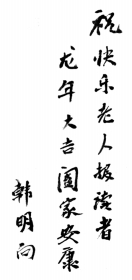 祝快乐老人报读者
龙年大吉阖家安康
韩明向